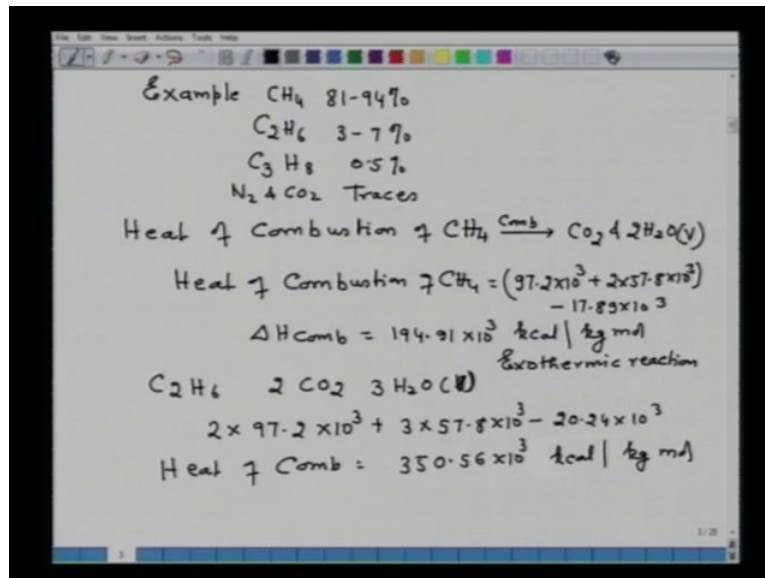 File Edit View Insert Actions Tools Help
Example CH4 81-94%
C2H6 3-7%
C3H8 0.5%
N2 & CO2 Traces
Heat of Combustion of CH4 Comb → CO2 & 2H2O(V)
Heat of Combustion of CH4 = (97.2x10³ + 2x57.8x10³)
- 17.89x10³
ΔHcomb = 194.91 x10³ kcal | kg mol
Exothermic reaction
C2H6 2 CO2 3 H2O(V)
2 x 97.2 x10³ + 3 x 57.8x10³ - 20.24x10³
Heat of Comb = 350.56x10³ kcal | kg mol
3/25
3